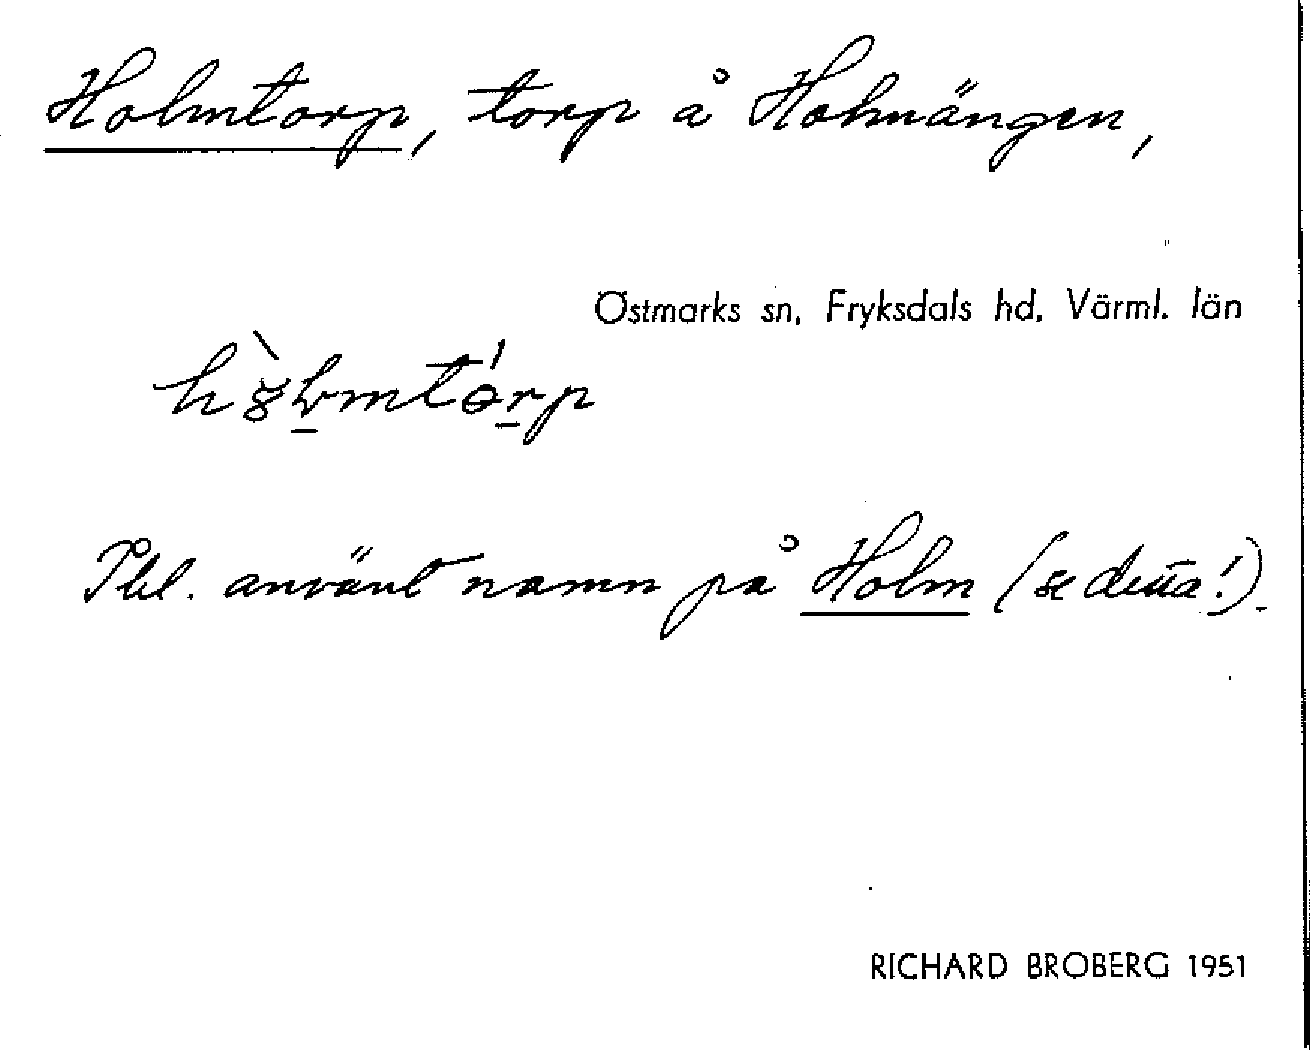 Holmtorp, torp å Holmängen,
Östmarks sn, Fryksdals hd, Värml. län
Ibl. använt namn på Holm (se detta!).
RICHARD BROBERG 1951